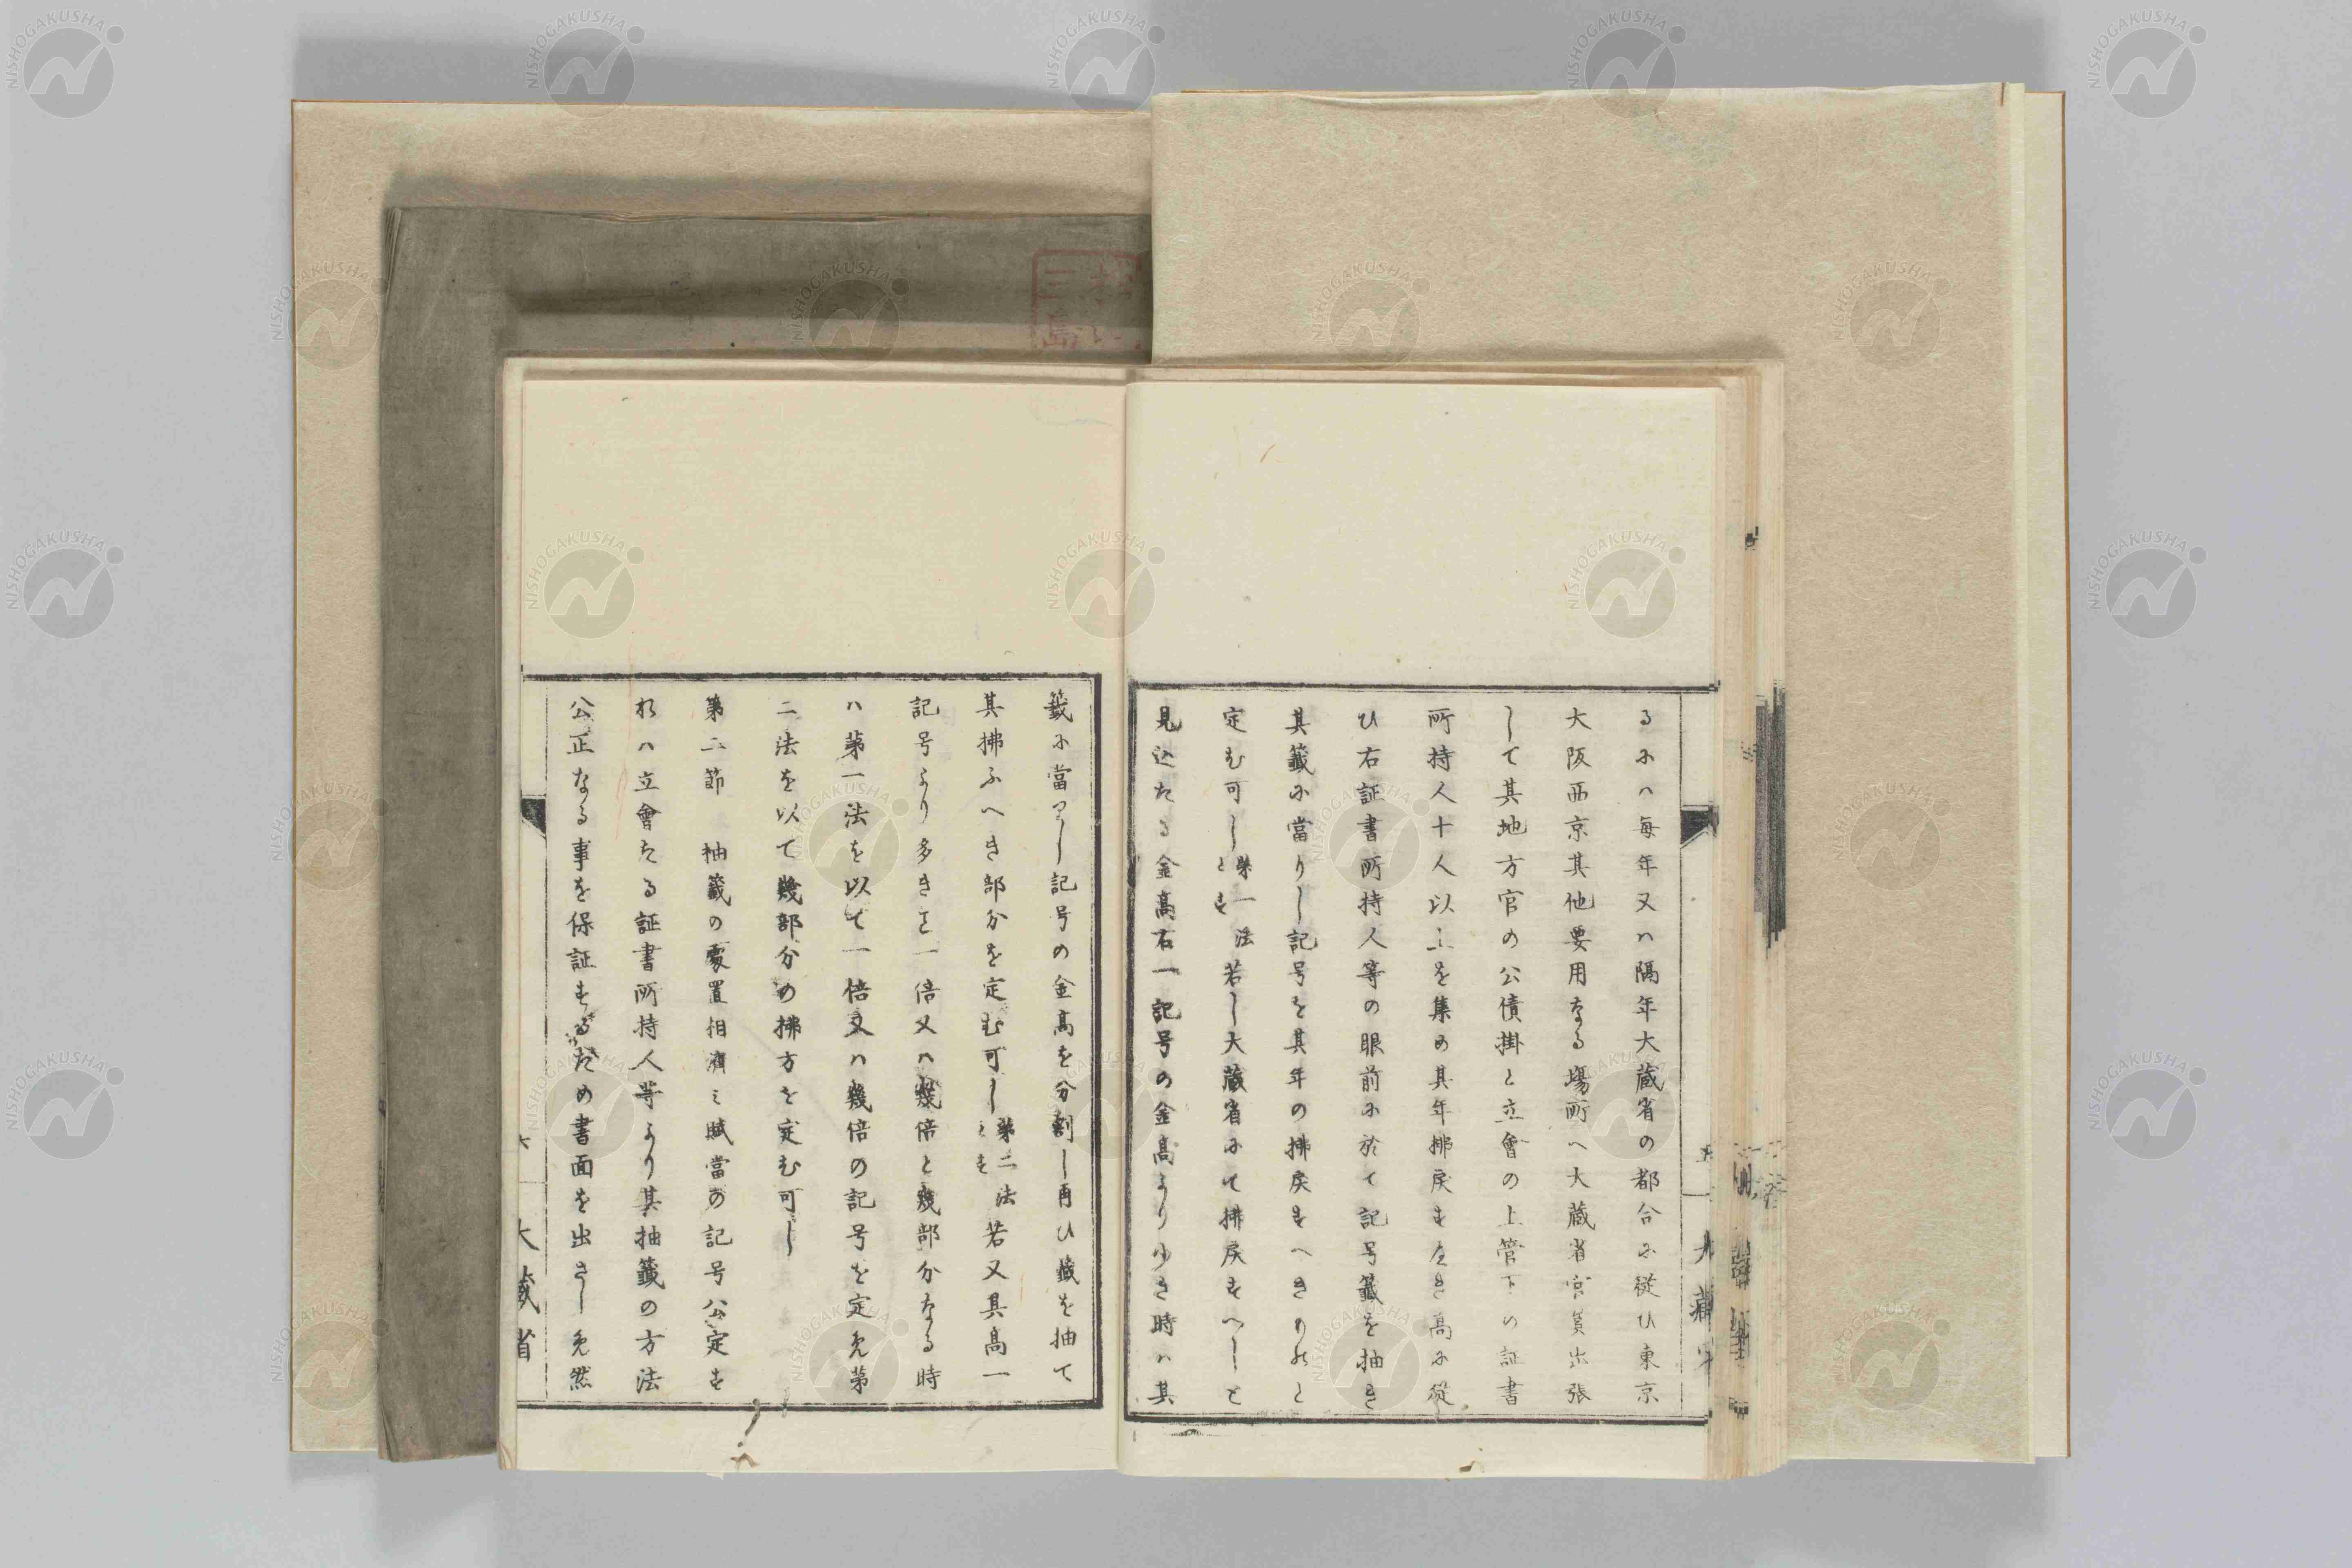 るにハ毎年又ハ隔年大蔵省の都合に従ひ東京
大阪西京其他要用なる場所へ大蔵省官員出張
して其地方官の公債掛と立會の上管下の証書
所持人十人以上を集め其年拂戻す可き高に従
ひ右証書所持人等の眼前に於て記号籤を抽き
其籤に當りし記号を其年の拂戻すへきものと
定む可し第一法とす若し大蔵省にて拂戻すへしと
見込たる金高右一記号の金高より少き時ハ其
五
大蔵省
籤に當りし記号の金高を分割し再ひ籤を抽て
其拂ふへき部分を定む可し第二法とす若又其高一
記号より多きこと一倍又ハ幾倍と幾部分なる時
ハ第一法を以て一倍又ハ幾倍の記号を定め第
二法を以て幾部分の拂方を定む可し
第二節 抽籤の處置相濟ミ賦當の記号公定す
れハ立會たる証書所持人等より其抽籤の方法
公正なる事を保証するため書面を出さしめ然
六
大蔵省
NISHOGAKUSHA